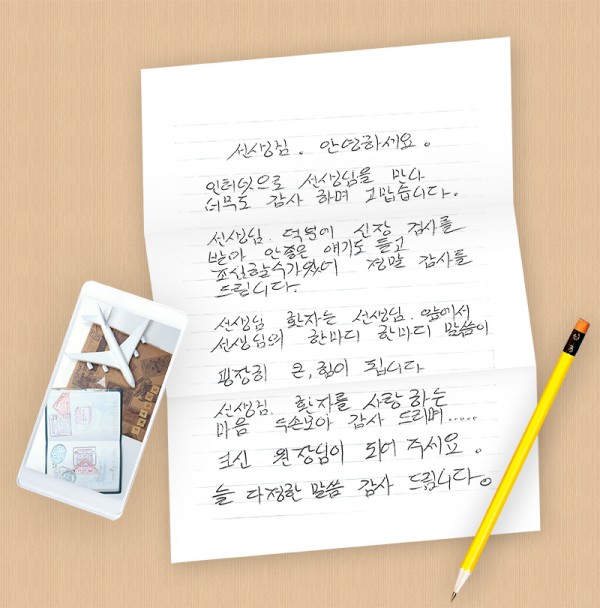 선생님. 안영하세요.
인터넷으로 선생님을 만나
너무도 감사 하며 고맙습니다.
선생님. 덕분에 신장 검사를
받아 안좋은 얘기도 듣고
조심할수가있어 정말 감사를
드립니다.
선생님 환자는 선생님. 앞에서
선생님의 한마디 한마디 말씀이
굉장히 큰, 힘이 됩니다
선생님. 환자를 사랑 하는
마음 두손모아 감사 드리며.....
크신 원장님이 되어 주세요.
늘 다정한 말씀 감사 드립니다.